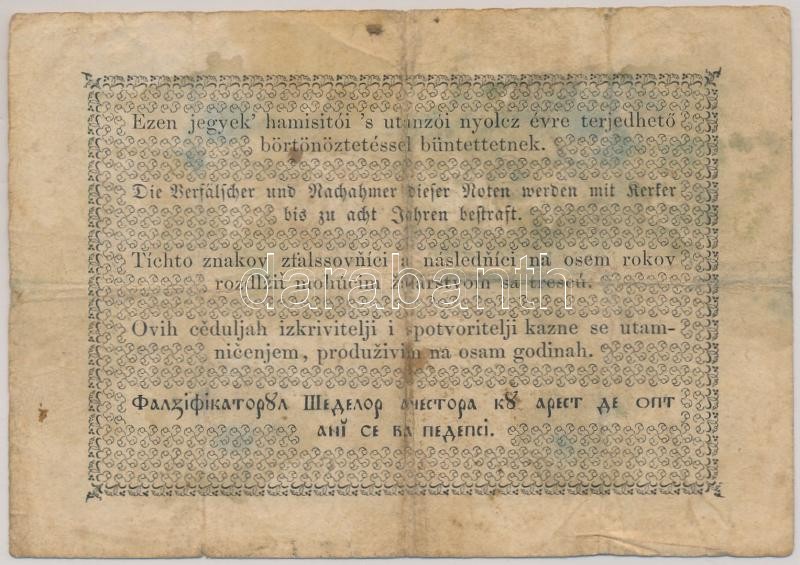 Ezen jegyek’ hamisitói ’s utánzói nyolcz évre terjedhető
börtönöztetéssel büntettetnek.
Die Verfälscher und Nachahmer dieser Noten werden mit Kerker
bis zu acht Jahren bestraft.
Tíchto znakov zfalssovňíci i následňíci na osem rokov
rozdlžií mohúcim žalárstvom sa trescú.
darabanth
Ovih cěduljah izkrivitelji i spotvoritelji kazne se utam-
ničenjem, produživim na osam godinah.
Фалꙃіфікаторꙋл Шеделор ачестора кꙋ арест де опт
анĭ се ва педепсі.